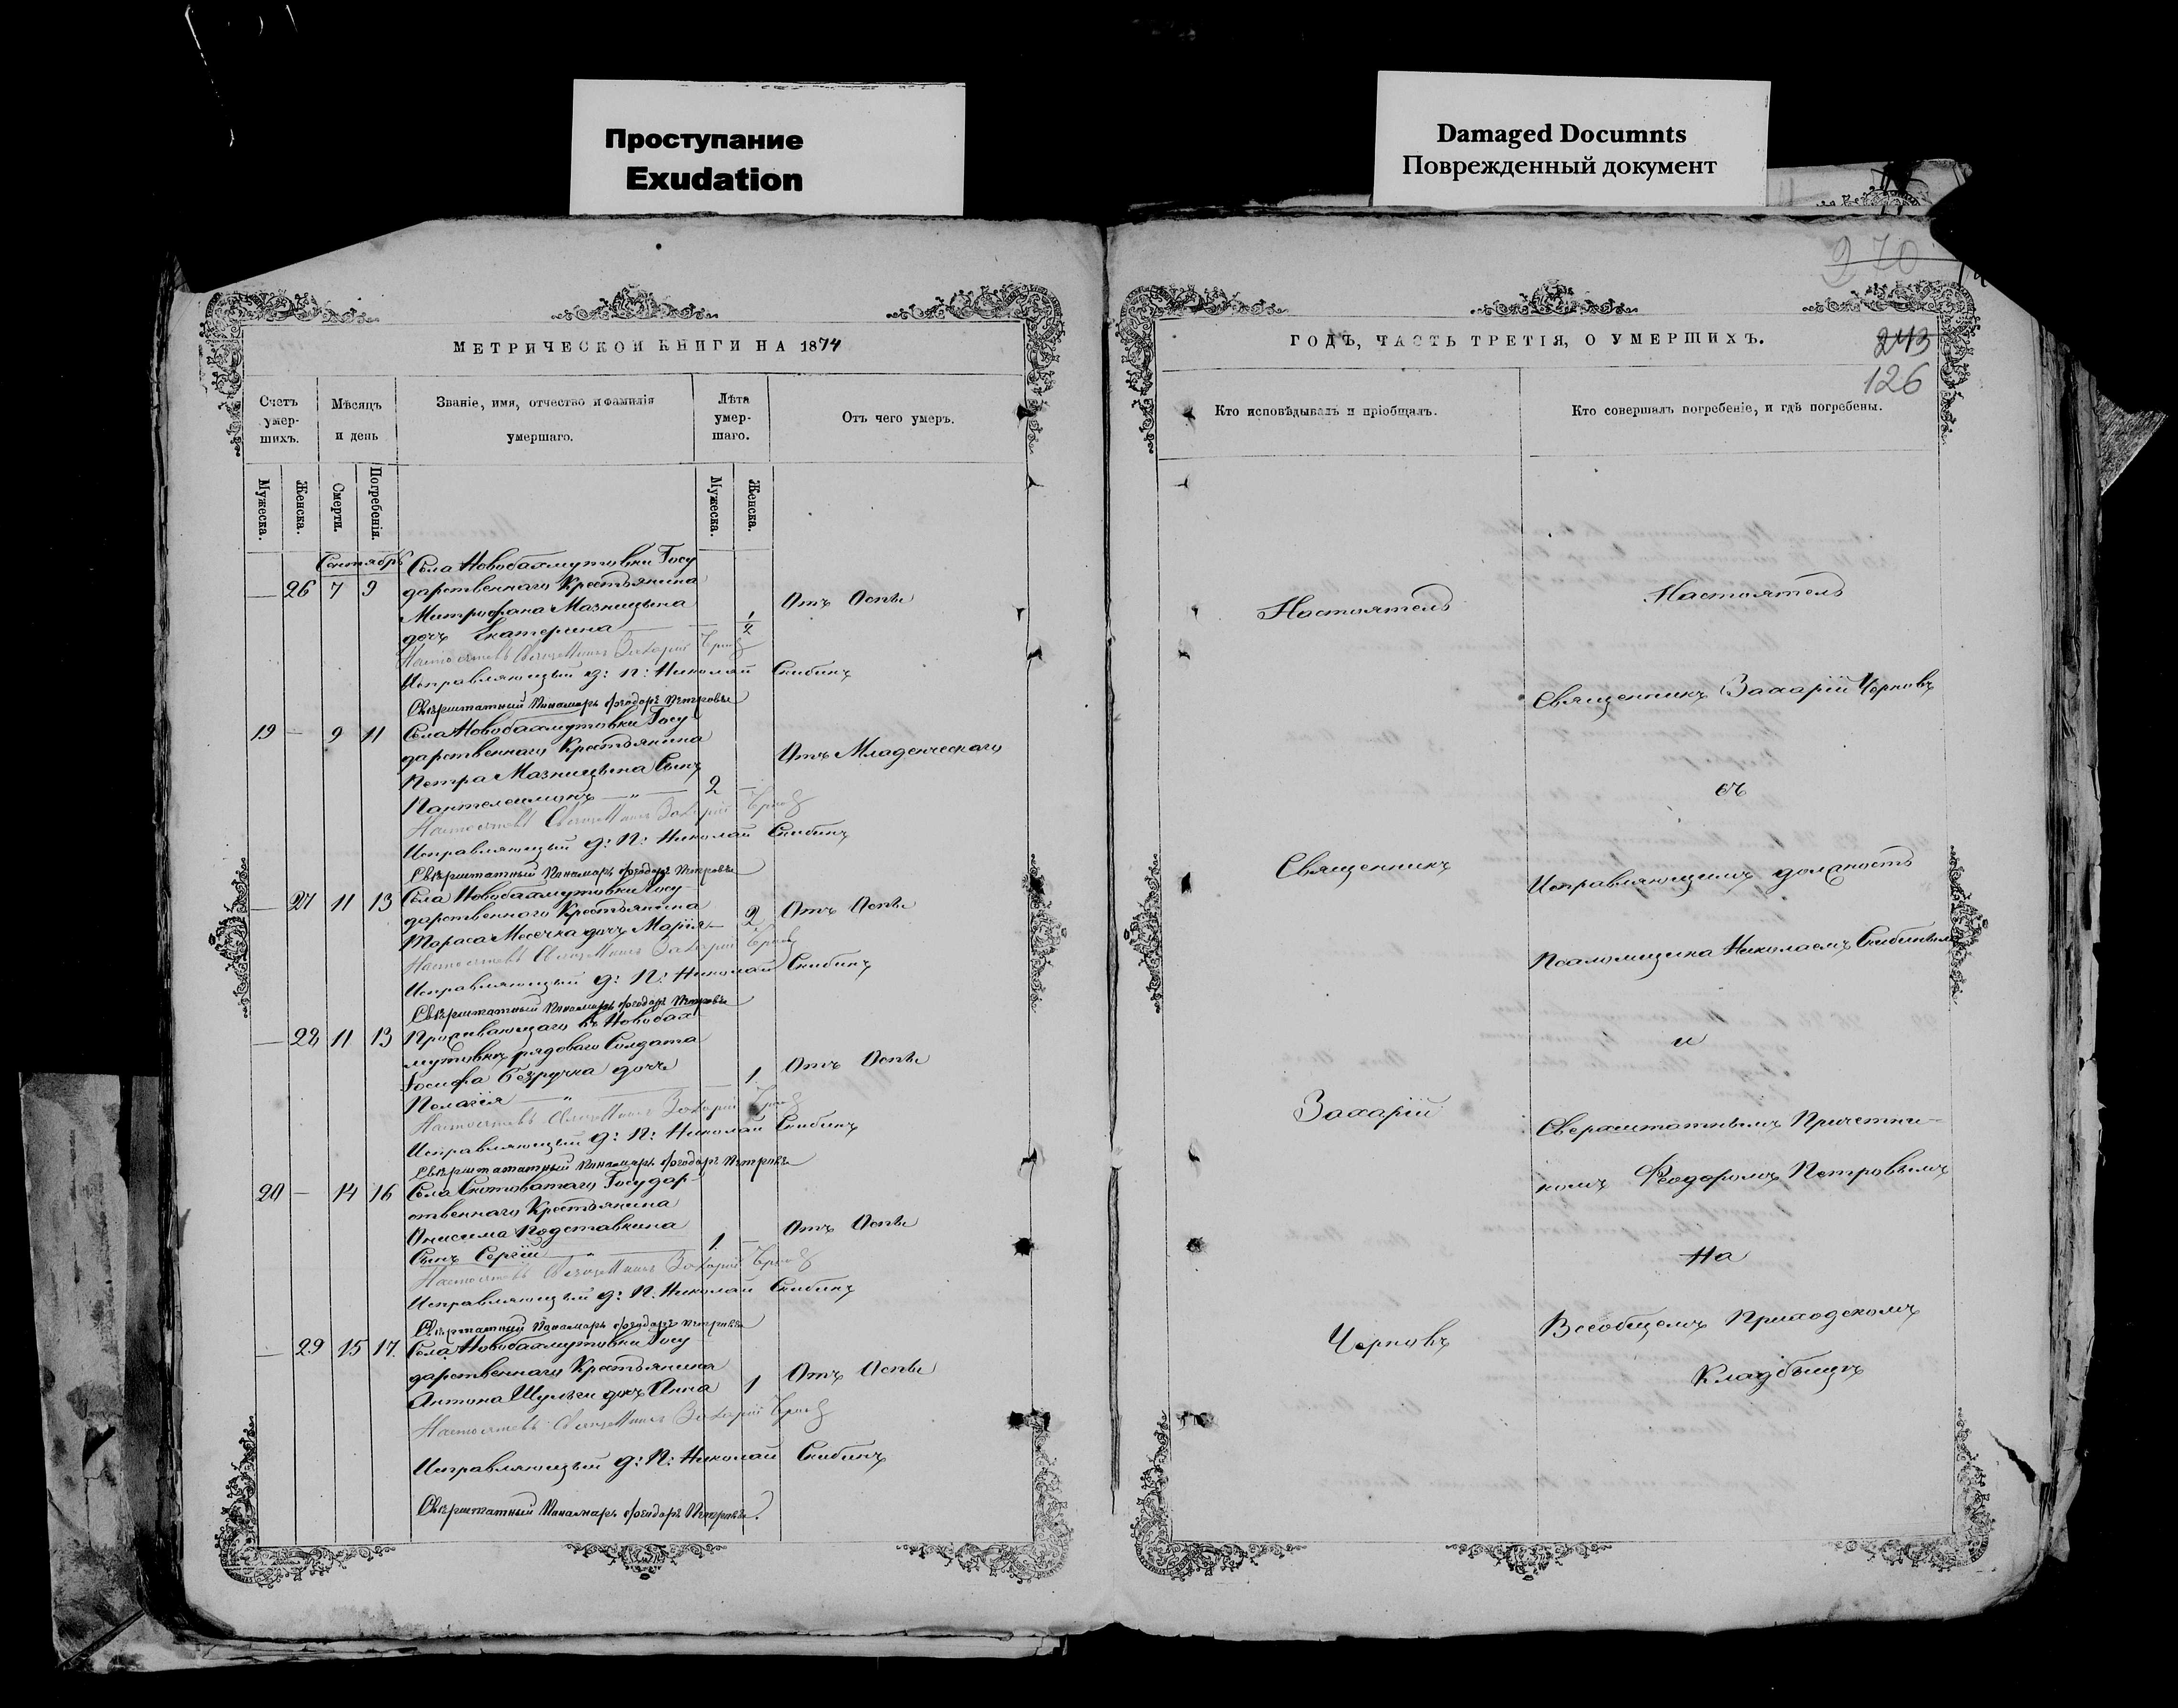 Проступание
Exudation
Damaged Documnts
Поврежденный документ
270
МЕТРИЧЕСКОЙ КНИГИ НА 1874
Счетъ умер-шихъ.
Мѣсяцъ и день
Званіе, имя, отчество и фамилія умершаго.
Лѣта умер-шаго.
Отъ чего умеръ.
Мужеска.
Женска.
Смерти.
Погребенія.
Мужеска.
Женска.
Сентябрь
Села Новобахмутовки Госу
— 26 7 9 дарственнаго Крестьянина
Митрофана Мазницына Отъ Оспы
дочь Екатерина — 1/2
Настоятель Священникъ Захарій Черновъ
Исправляющій д: п: Николай Скибинъ
Сверхштатный Пономарь Ѳеодоръ Петровъ
19 — 9 11 Села Новобахмутовки Госу
дарственнаго Крестьянина
Петра Мазницына Сынъ Отъ Младенческаго
Пантелеимонъ — " — 2 —
Настоятель Священникъ Захарій Черновъ
Исправляющій д: п: Николай Скибинъ
Сверхштатный Пономарь Ѳеодоръ Петровъ
— 27 11 13 Села Новобахмутовки Госу-
дарственнаго Крестьянина Отъ Оспы
Тараса дочь Марія — 2
Настоятель Священникъ Захарій Черновъ
Исправляющій д: п: Николай Скибинъ
Сверхштатный Пономарь Ѳеодоръ Петровъ
— 28 11 13 Проживающаго въ Новобах
мутовкѣ рядоваго Солдата
Іосифа Безручка дочь 1 Отъ Оспы
Пелагія — " —
Настоятель Священникъ Захарій Черновъ
Исправляющій д: п: Николай Скибинъ
Сверхштатный Пономарь Ѳеодоръ Петровъ
20 — 14 16 Села Скотоватаго Государ-
ственнаго Крестьянина
Онисима Подставкина Отъ Оспы
Сынъ Сергій — " — 1 —
Настоятель Священникъ Захарій Черновъ
Исправляющій д: п: Николай Скибинъ
Сверхштатный Пономарь Ѳеодоръ Петровъ
— 29 15 17 Села Новобахмутовки Госу
дарственнаго Крестьянина Отъ Оспы
Антона Шульги дочь Анна 1
Настоятель Священникъ Захарій Черновъ
Исправляющій д: п: Николай Скибинъ
Сверхштатный Пономарь Ѳеодоръ Петровъ.
ГОДЪ, ЧАСТЬ ТРЕТІЯ, О УМЕРШИХЪ.
243
126
Кто исповѣдывалъ и пріобщалъ.
Кто совершалъ погребеніе, и гдѣ погребены.
Настоятель
Священникъ
Захарій
Черновъ
Настоятель
Священникъ Захарій Черновъ
съ
Исправляющимъ должность
Псаломщика Николаемъ Скибинымъ
и
Сверхштатнымъ Причетни-
комъ Ѳеодоромъ Петровымъ
На
Всеобщемъ Приходскомъ
Кладбищѣ